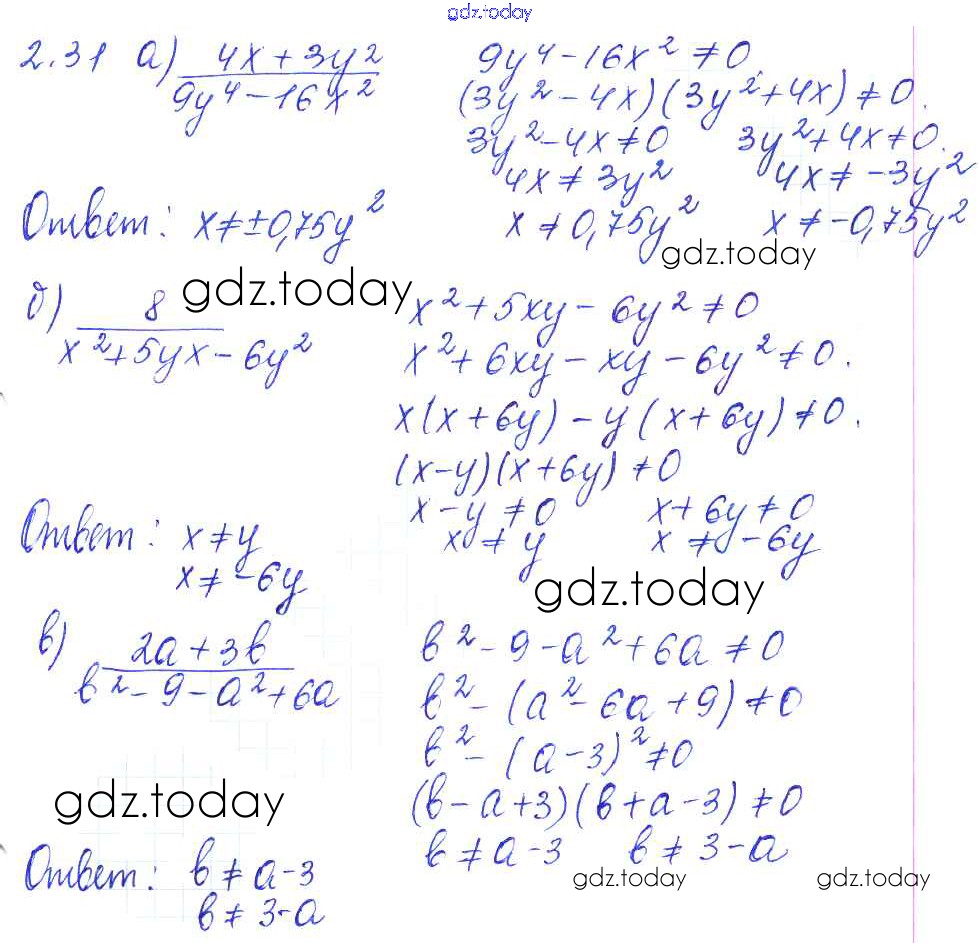 gdz.today
2.31 а) (4x + 3y²)/(9y⁴ - 16x²)
9y⁴ - 16x² ≠ 0
(3y² - 4x)(3y² + 4x) ≠ 0.
3y² - 4x ≠ 0 3y² + 4x ≠ 0.
4x ≠ 3y² 4x ≠ -3y²
x ≠ 0,75y² x ≠ -0,75y²
gdz.today
Ответ: x ≠ ±0,75y²
gdz.today
б) 8/(x² + 5yx - 6y²)
x² + 5xy - 6y² ≠ 0
x² + 6xy - xy - 6y² ≠ 0.
x(x + 6y) - y(x + 6y) ≠ 0.
(x - y)(x + 6y) ≠ 0
x - y ≠ 0 x + 6y ≠ 0
x ≠ y x ≠ -6y
Ответ: x ≠ y
x ≠ -6y
gdz.today
в) (2a + 3b)/(b² - 9 - a² + 6a)
b² - 9 - a² + 6a ≠ 0
b² - (a² - 6a + 9) ≠ 0
b² - (a - 3)² ≠ 0
(b - a + 3)(b + a - 3) ≠ 0
b ≠ a - 3 b ≠ 3 - a
gdz.today
Ответ: b ≠ a - 3
b ≠ 3 - a
gdz.today gdz.today